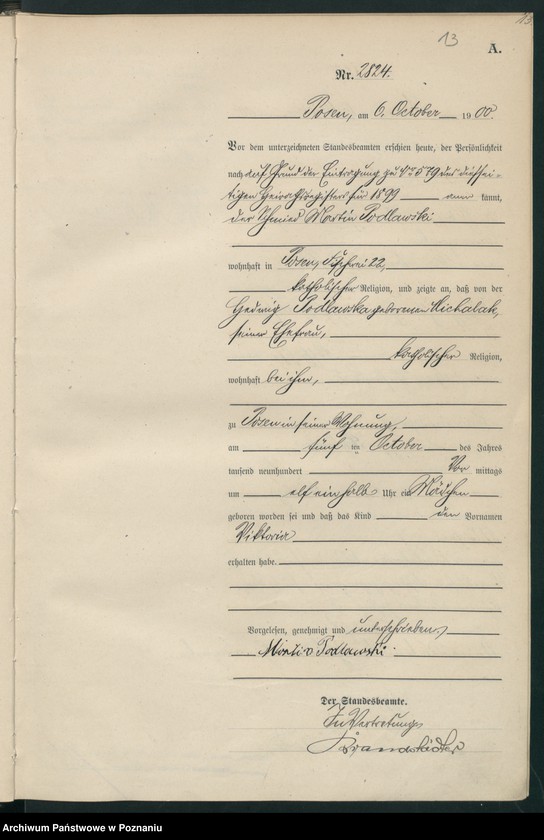 13
13
A.
Nr. 2824.
Posen, am 6. October 1900.
Vor dem unterzeichneten Standesbeamten erschien heute, der Persönlichkeit
nach auf Grund der Eintragung zu No 579 des diessei-
tigen Heirathsregisters für 1899 aner kannt,
der Schmied Martin Podlawski
wohnhaft in Posen, Fischerei 22,
katholischer Religion, und zeigte an, daß von der
Hedwig Podlawska geborenen Michalak,
seiner Ehefrau,
katholischer Religion,
wohnhaft bei ihm,
zu Posen in seiner Wohnung,
am fünf ten October des Jahres
tausend neunhundert Vor mittags
um elf einhalb Uhr ein Mädchen
geboren worden sei und daß das Kind den Vornamen
Viktoria
erhalten habe.
Vorgelesen, genehmigt und unterschrieben
Podlawski
Der Standesbeamte.
In Vertretung
Brandstädter
Archiwum Państwowe w Poznaniu